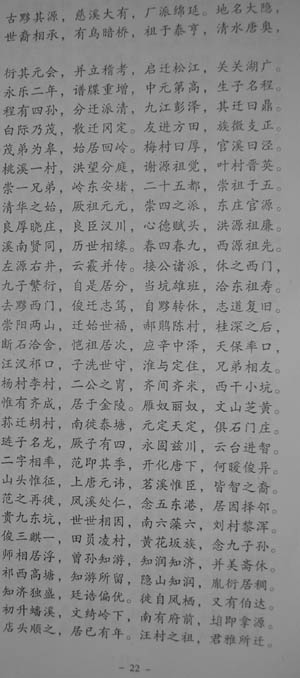 古黟其源，慈溪大有，厂派绵延。地名大隐，
世裔相承，有鸟暗桥，祖于泰亨，清水唐奥，
衍其元会，并立稽考，启迁松江，关关湖广。
永乐二年，谱牒重增，中元第高，生子名程。
程有四孙，分迁派清，九江彭泽，其迁曰鼎。
白际乃茂，散迁冈定。友进方田，族微支正。
茂弟为皋，始居回岭。梅村曰厚，官溪曰泾。
桃溪一村，洪望分庭，谢源祖觉，叶村晋英。
崇一兄弟，岭东安堵，二十五都，崇祖于五。
清华之始，厥祖元元，崇四之派，东庄官源。
良厚晓庄，良臣汉川，心德赋头，洪源祖廉。
溪南贤同，历世相缘。春四春九，西源祖先。
左源右井，云霰并传。接公诸派，休之西门，
九子繁衍，自是居分，当坑雄班，洽东祖寿。
去黟西门，俊迁志笃，自黟转休，志道复旧。
崇阳两山，迁始世福，郝鹍陈村，桂深之后，
断石洽舍，恺祖居次。应辛中泽，天保率口，
汪汉祁口，子洗世守，淮与定住，兄弟相友。
杨村李村，二公之胄，齐间齐米，西干小坑。
惟有齐成，居于金陵。雁奴丽奴，文山芝黄。
荪迁胡村，南徙泰塘，元定天定，俱石门庄。
琏子名龙，厥子有四，永园兹川，云台进智。
二字相率，范即其季，开化唐下，何暖俊异。
山头惟征，上唐元讳，茗溪惟臣，皆智之裔。
范之再徙，凤溪处仁，念五东港，居因择邻。
贵九东坑，世世相因，南六藻六，刘村黎浑。
俊三麒一，田员凌村，黄花坂族，念九子孙。
师相居浮，曾孙知游，知润知济，并美斋休。
祁西高塘，知游所留，隐山知润，胤衍居稠。
知济独盛，廷诰偏优。徙自凤栖，又有伯达。
初升蟠溪，文绮岭下，南有府前，垍即拿源。
店头顺之，居已有年。汪村之祖，君雅所迁。
- 22 -